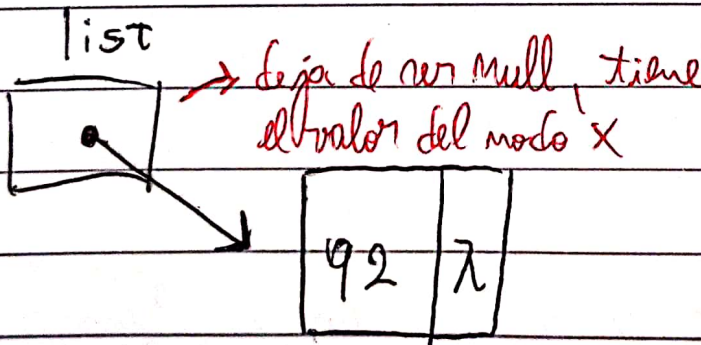 list
→ deja de ser null, tiene
el valor del nodo X
92 λ